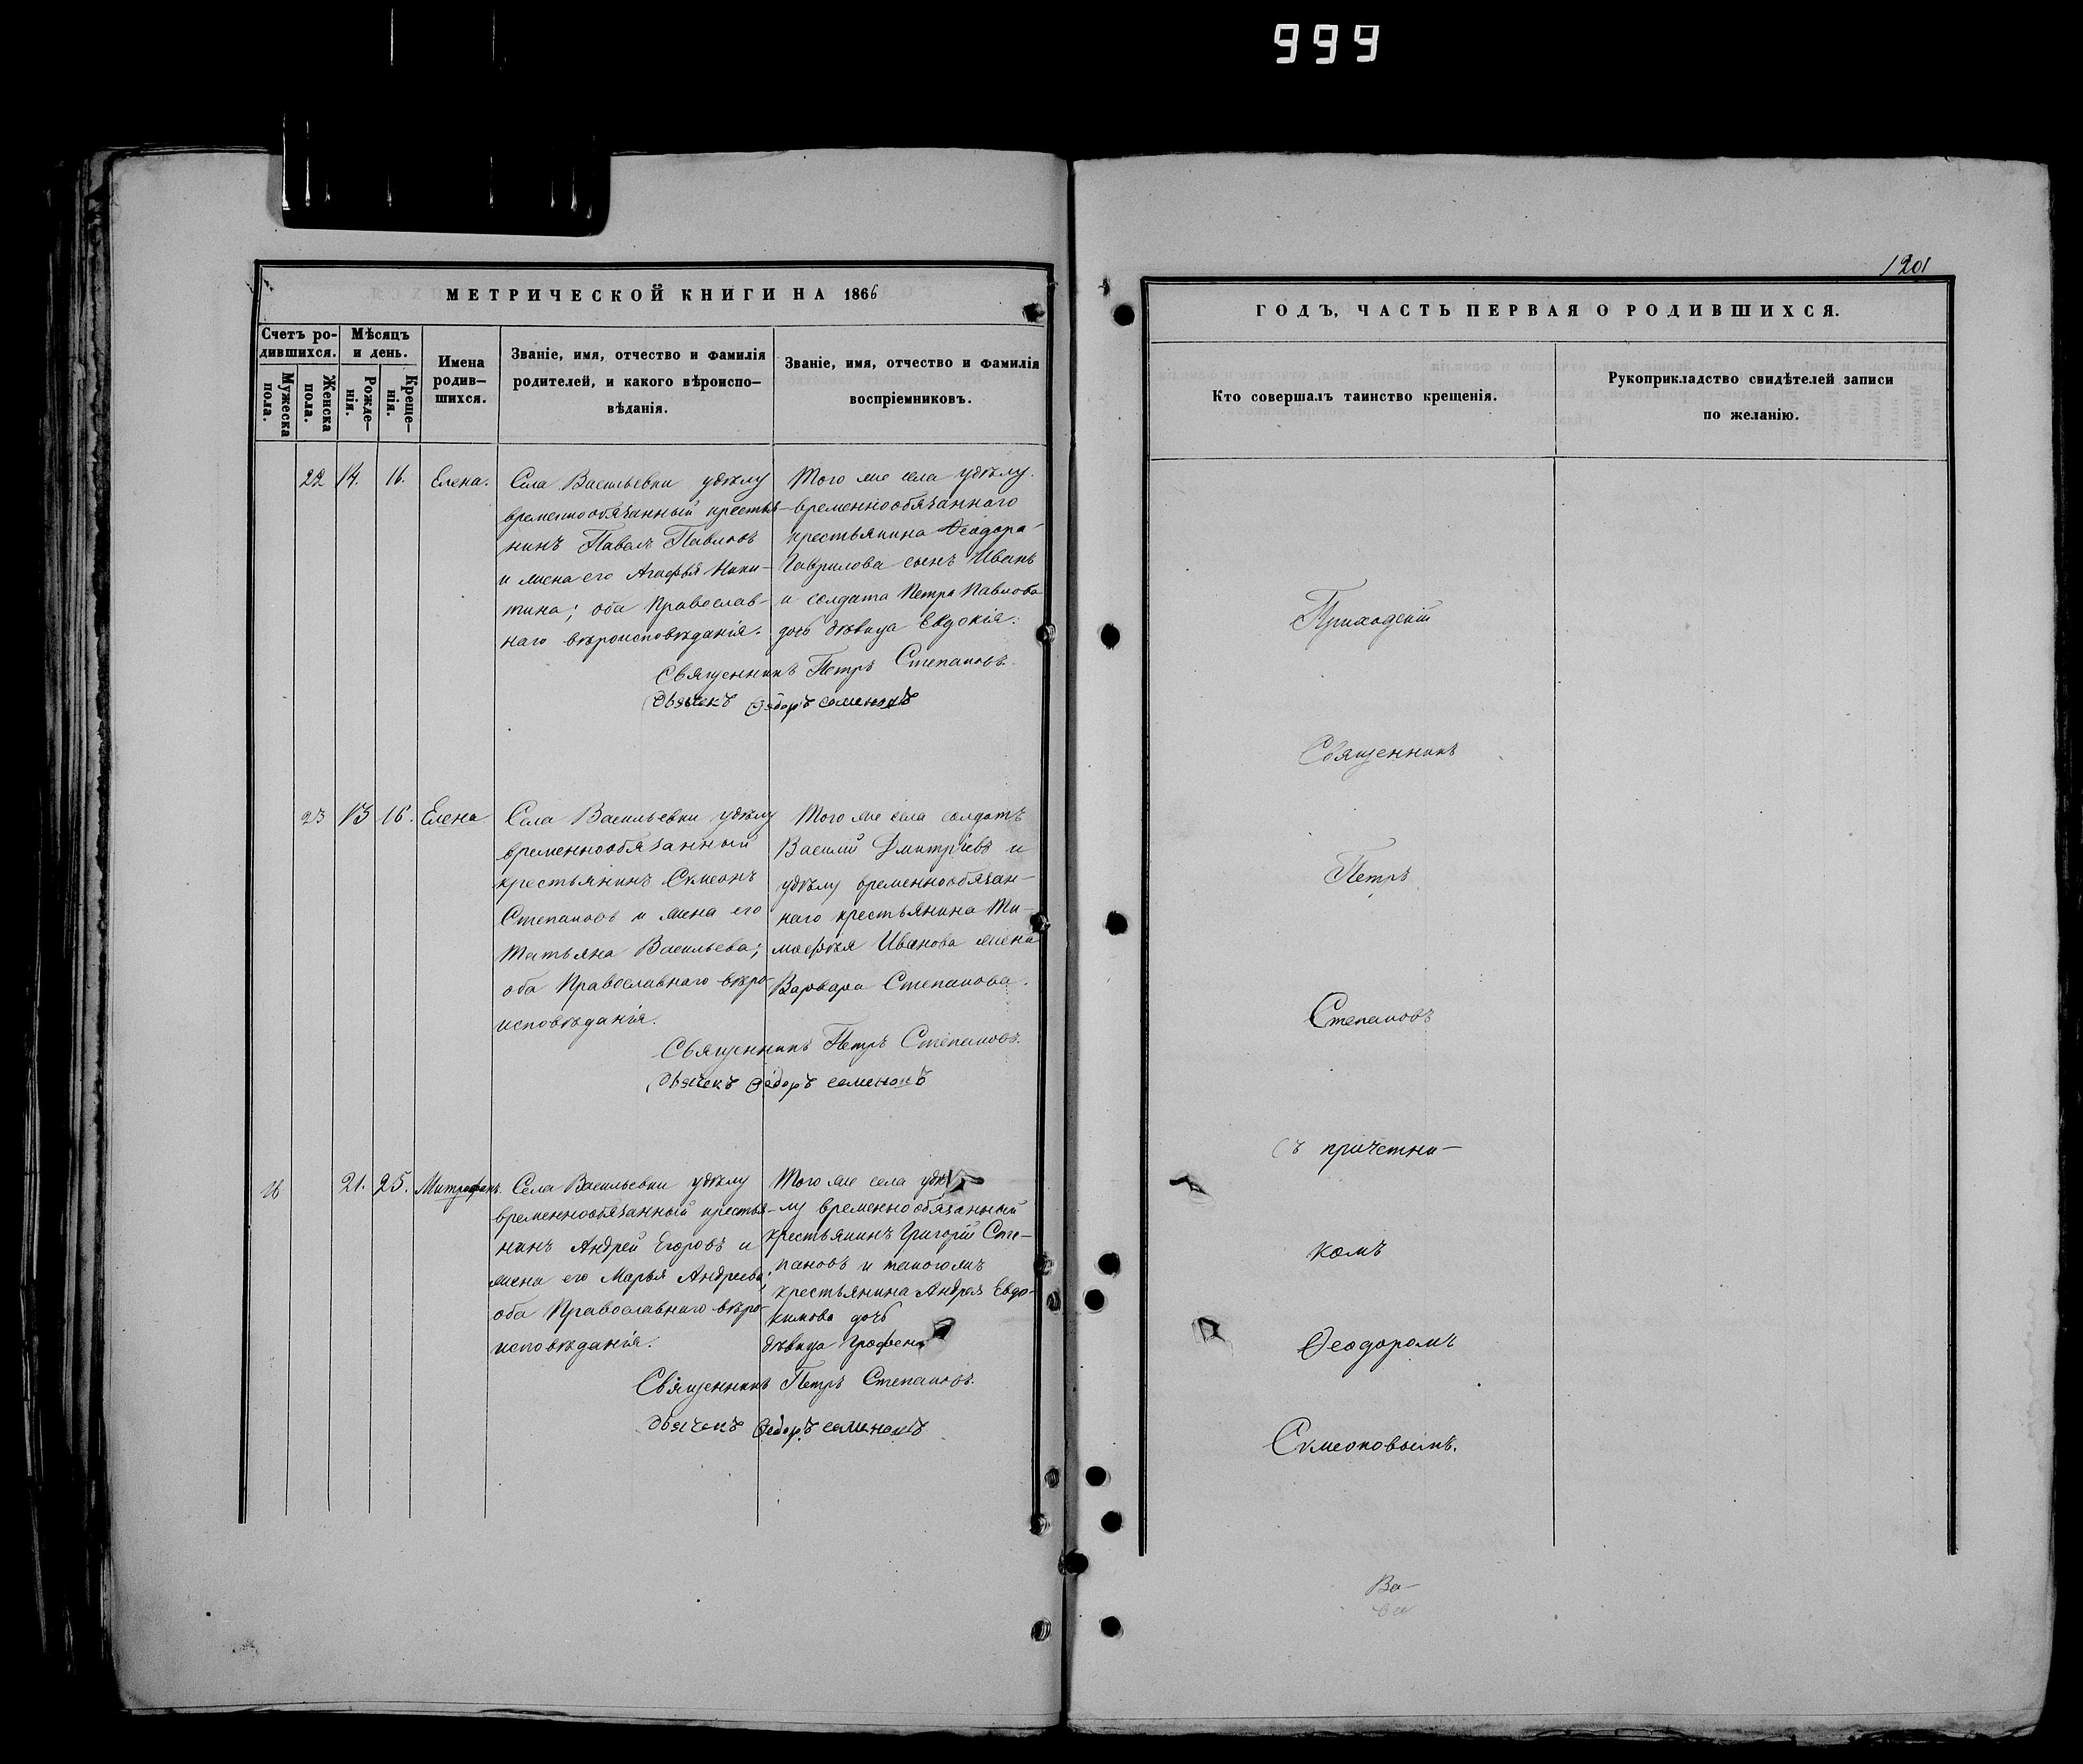 999
МЕТРИЧЕСКОЙ КНИГИ НА 1866
Счетъ ро-
дившихся.
Мужеска
пола.
Женска
пола.
Мѣсяцъ
и день.
Рожде-
нія.
Креще-
нія.
Имена
родив-
шихся.
Званіе, имя, отчество и фамилія
родителей, и какого вѣроиспо-
вѣданія.
Званіе, имя, отчество и фамилія
воспріемниковъ.
22 14. 16. Елена.
Села Васильевки удѣлу
временнообязанный крестья-
нинъ Павелъ Павловъ
и жена его Агафья Ники-
тина; оба Православ-
наго вѣроисповѣданія.
Того же села удѣлу.
временнообязаннаго
крестьянина Ѳеодора
Гаврилова сынъ Иванъ
и солдата Петра Павлова
дочь дѣвица Евдокія.
Священникъ Петръ Степановъ.
Дьячекъ Ѳедоръ семеновъ
23 13 16. Елена
Села Васильевки удѣлу
временнообязанный
крестьянинъ Сѵмеонъ
Степановъ и жена его
Татьяна Васильева;
оба Православнаго вѣро-
исповѣданія.
Того же села солдатъ
Василій Дмитріевъ и
удѣлу временнообязан-
наго крестьянина Ти-
мофѣя Иванова жена
Варвара Степанова.
Священникъ Петръ Степановъ.
Дьячекъ Ѳедоръ семеновъ
21. 25. Митрофанъ.
Села Васильевки удѣлу
временнообязанный крестья-
нинъ Андрей Егоровъ и
жена его Марья Андреева;
оба Православнаго вѣро-
исповѣданія.
Того же села удѣ-
лу временнообязанный
крестьянинъ Григорій Сте-
пановъ и такогожъ
крестьянина Андрея Евдо-
кимова дочь
дѣвица Графена
Священникъ Петръ Степановъ.
Дьячекъ Ѳедоръ семеновъ
1201
ГОДЪ, ЧАСТЬ ПЕРВАЯ О РОДИВШИХСЯ.
Кто совершалъ таинство крещенія.
Рукоприкладство свидѣтелей записи
по желанію.
Приходскій
Священникъ
Петръ
Степановъ
съ причетни-
комъ
Ѳеодоромъ
Сѵмеоновымъ.